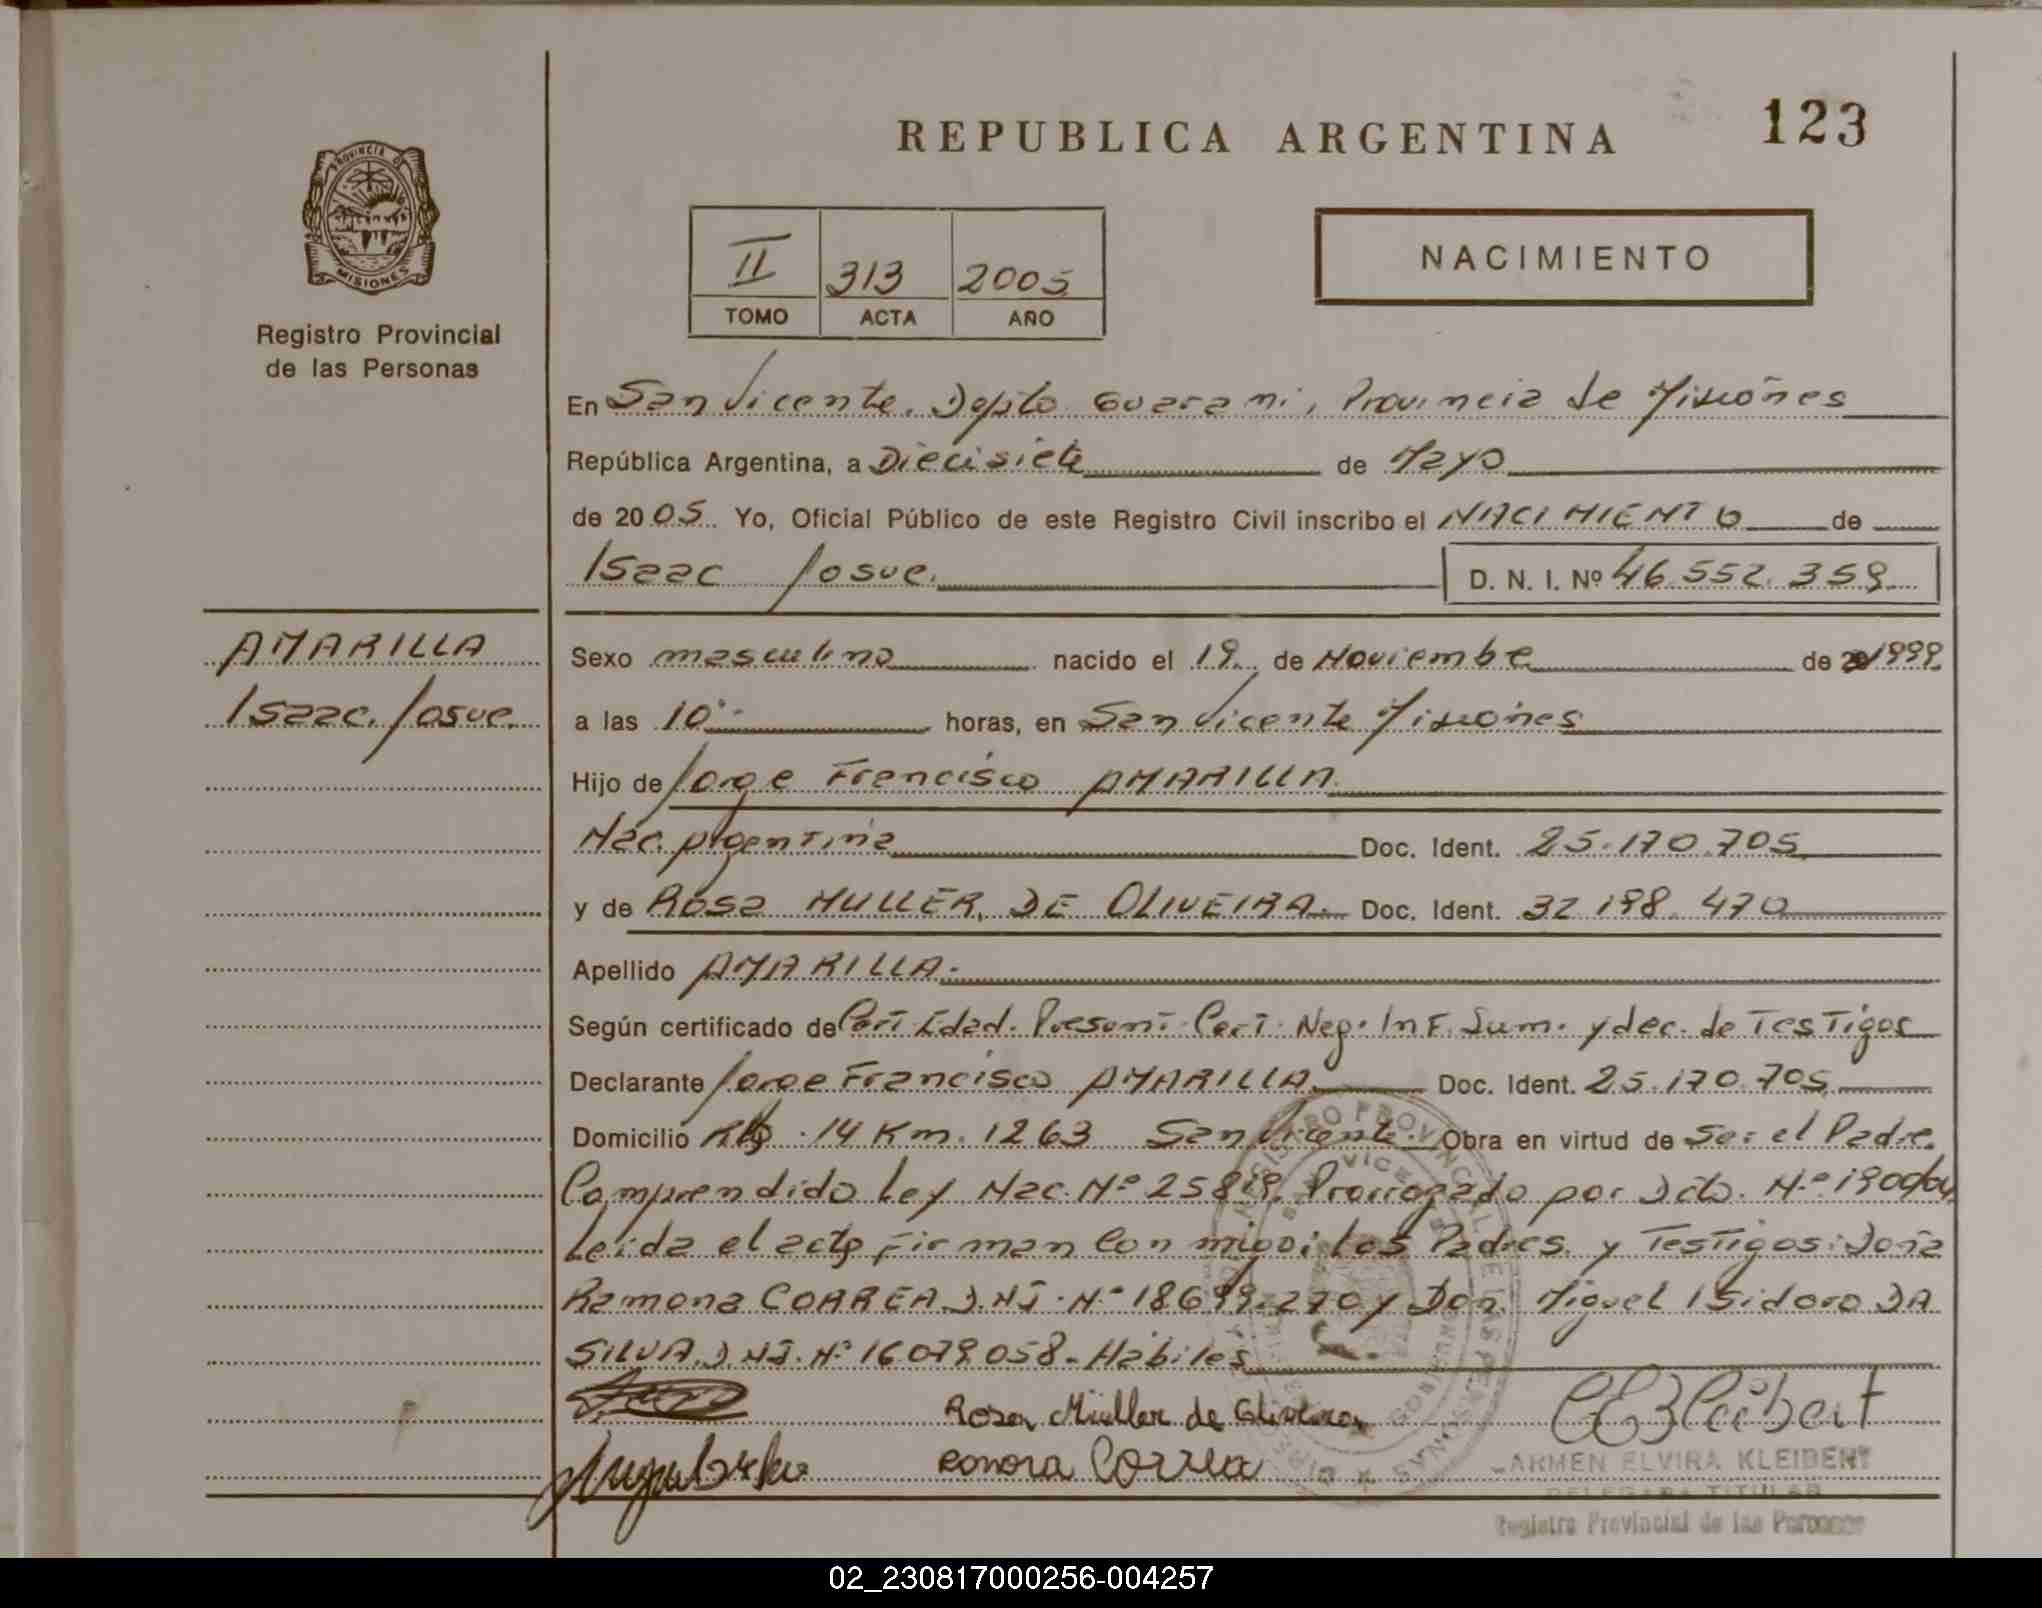 REPUBLICA ARGENTINA
123
PROVINCIA D
MISIONES
Registro Provincial
de las Personas
II 313 2005
TOMO ACTA AÑO
NACIMIENTO
En San Vicente, Dpto Guarani, Provincia de Misiones
República Argentina, a Diecisiete de Mayo
de 2005. Yo, Oficial Público de este Registro Civil inscribo el NACIMIENTO de
Isaac Josue. D. N. I. Nº 46.552.359
AMARILLA
Isaac Josue.
Sexo masculino nacido el 19 de Noviembre de 1999
a las 10 horas, en San Vicente Misiones
Hijo de Jorge Francisco AMARILLA.
Nac. Argentina Doc. Ident. 25.170.705
y de Rosa MULLER DE OLIVEIRA. Doc. Ident. 32 198 470
Apellido AMARILLA.
Según certificado de Cert Edad. Presunt. Cert. Neg. Inf. Sum. y dec. de Testigos
Declarante Jorge Francisco AMARILLA Doc. Ident. 25.170.705
Domicilio 14 Km. 1263 San Vicente. Obra en virtud de Ser el Padre.
Comprendido Ley Nac. Nº 25819. Prorrogado por Dcto. Nº 190
Leida el acta, firman con migo; los Padres. y Testigos: Doña
Ramona CORREA D.N.I. Nº 18699.270 y Don. Miguel Isidoro DA
SILVA. D.N.I. Nº 16079058.- Habiles
Rosa Müller de Oliveira
Ramona Correa
CARMEN ELVIRA KLEIBERT
DELEGADA TITULAR
Registro Provincial de las Personas
02_230817000256-004257